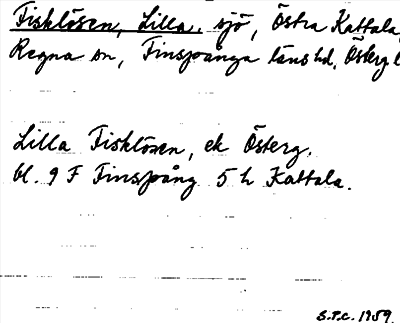 Fisklösen, Lilla, sjö, Östra Kattala,
Regna sn, Finspånga länshd, Österg l
Lilla Fisklösen, ek Österg.
bl. 9 F Finspång 5 h Kattala.
S.P.C. 1959.